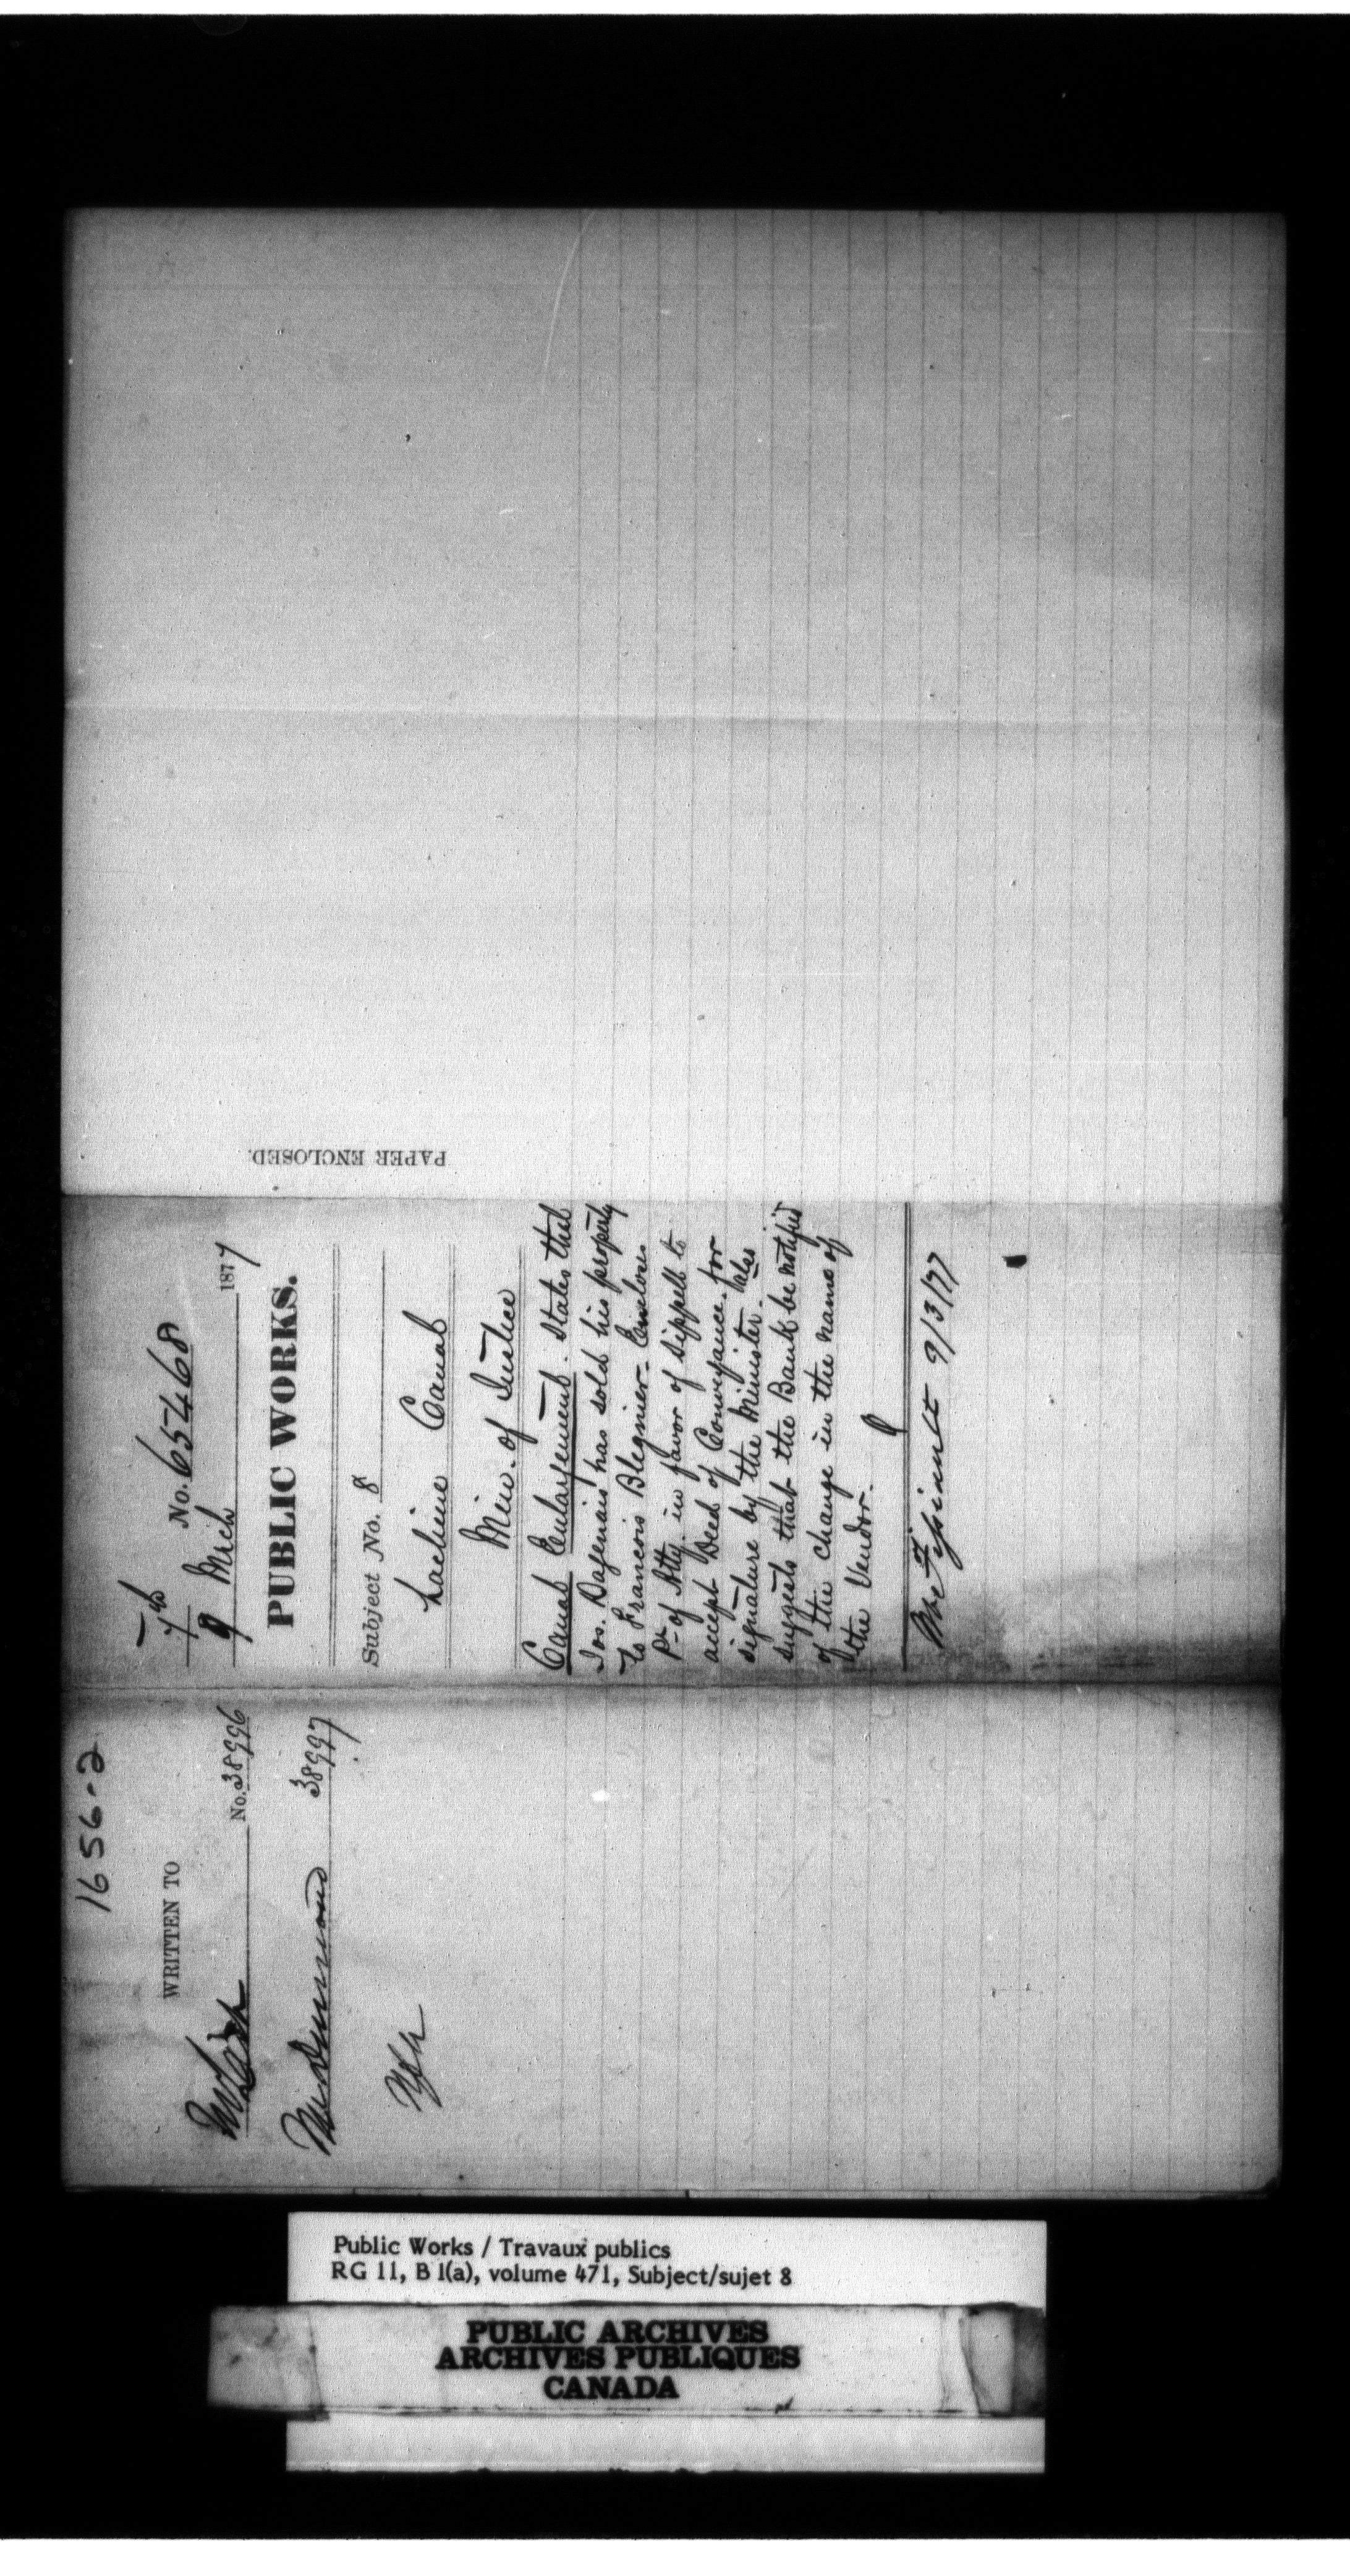 1656-2
WRITTEN TO
No. 38996
38997
7th
No. 65468
9 Mich 1877
PUBLIC WORKS.
Subject No. 8
Lachine Canal
Min. of Justice
Canal Enlargement. States that
Jos. Dagenais has sold his property
to Francois Blegnier - Encloses
Pr. of Atty. in favor of Sippell to
accept Deed of Conveyance for
signature by the Minister. Also
suggests that the Bank be notified
of the change in the name of
the Vendor.
9/3/77
PAPER ENCLOSED.
Public Works / Travaux publics
RG 11, B 1(a), volume 471, Subject/sujet 8
PUBLIC ARCHIVES
ARCHIVES PUBLIQUES
CANADA